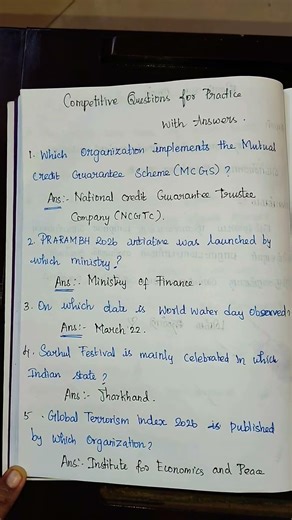 Competitive Questions for Practice
With Answers.
1. Which Organization implements the Mutual
Credit Guarantee Scheme (MCGS)?
Ans:- National Credit Guarantee Trustee
Company (NCGTC).
2. PRARAMBH 2026 initiative was launched by
which ministry?
Ans:- Ministry of Finance.
3. On which date is World Water day observed?
Ans:- March 22.
4. Sarhul Festival is mainly celebrated in which
Indian state?
Ans:- Jharkhand.
5. Global Terrorism Index 2026 is published
by which Organization?
Ans:- Institute for Economics and Peace